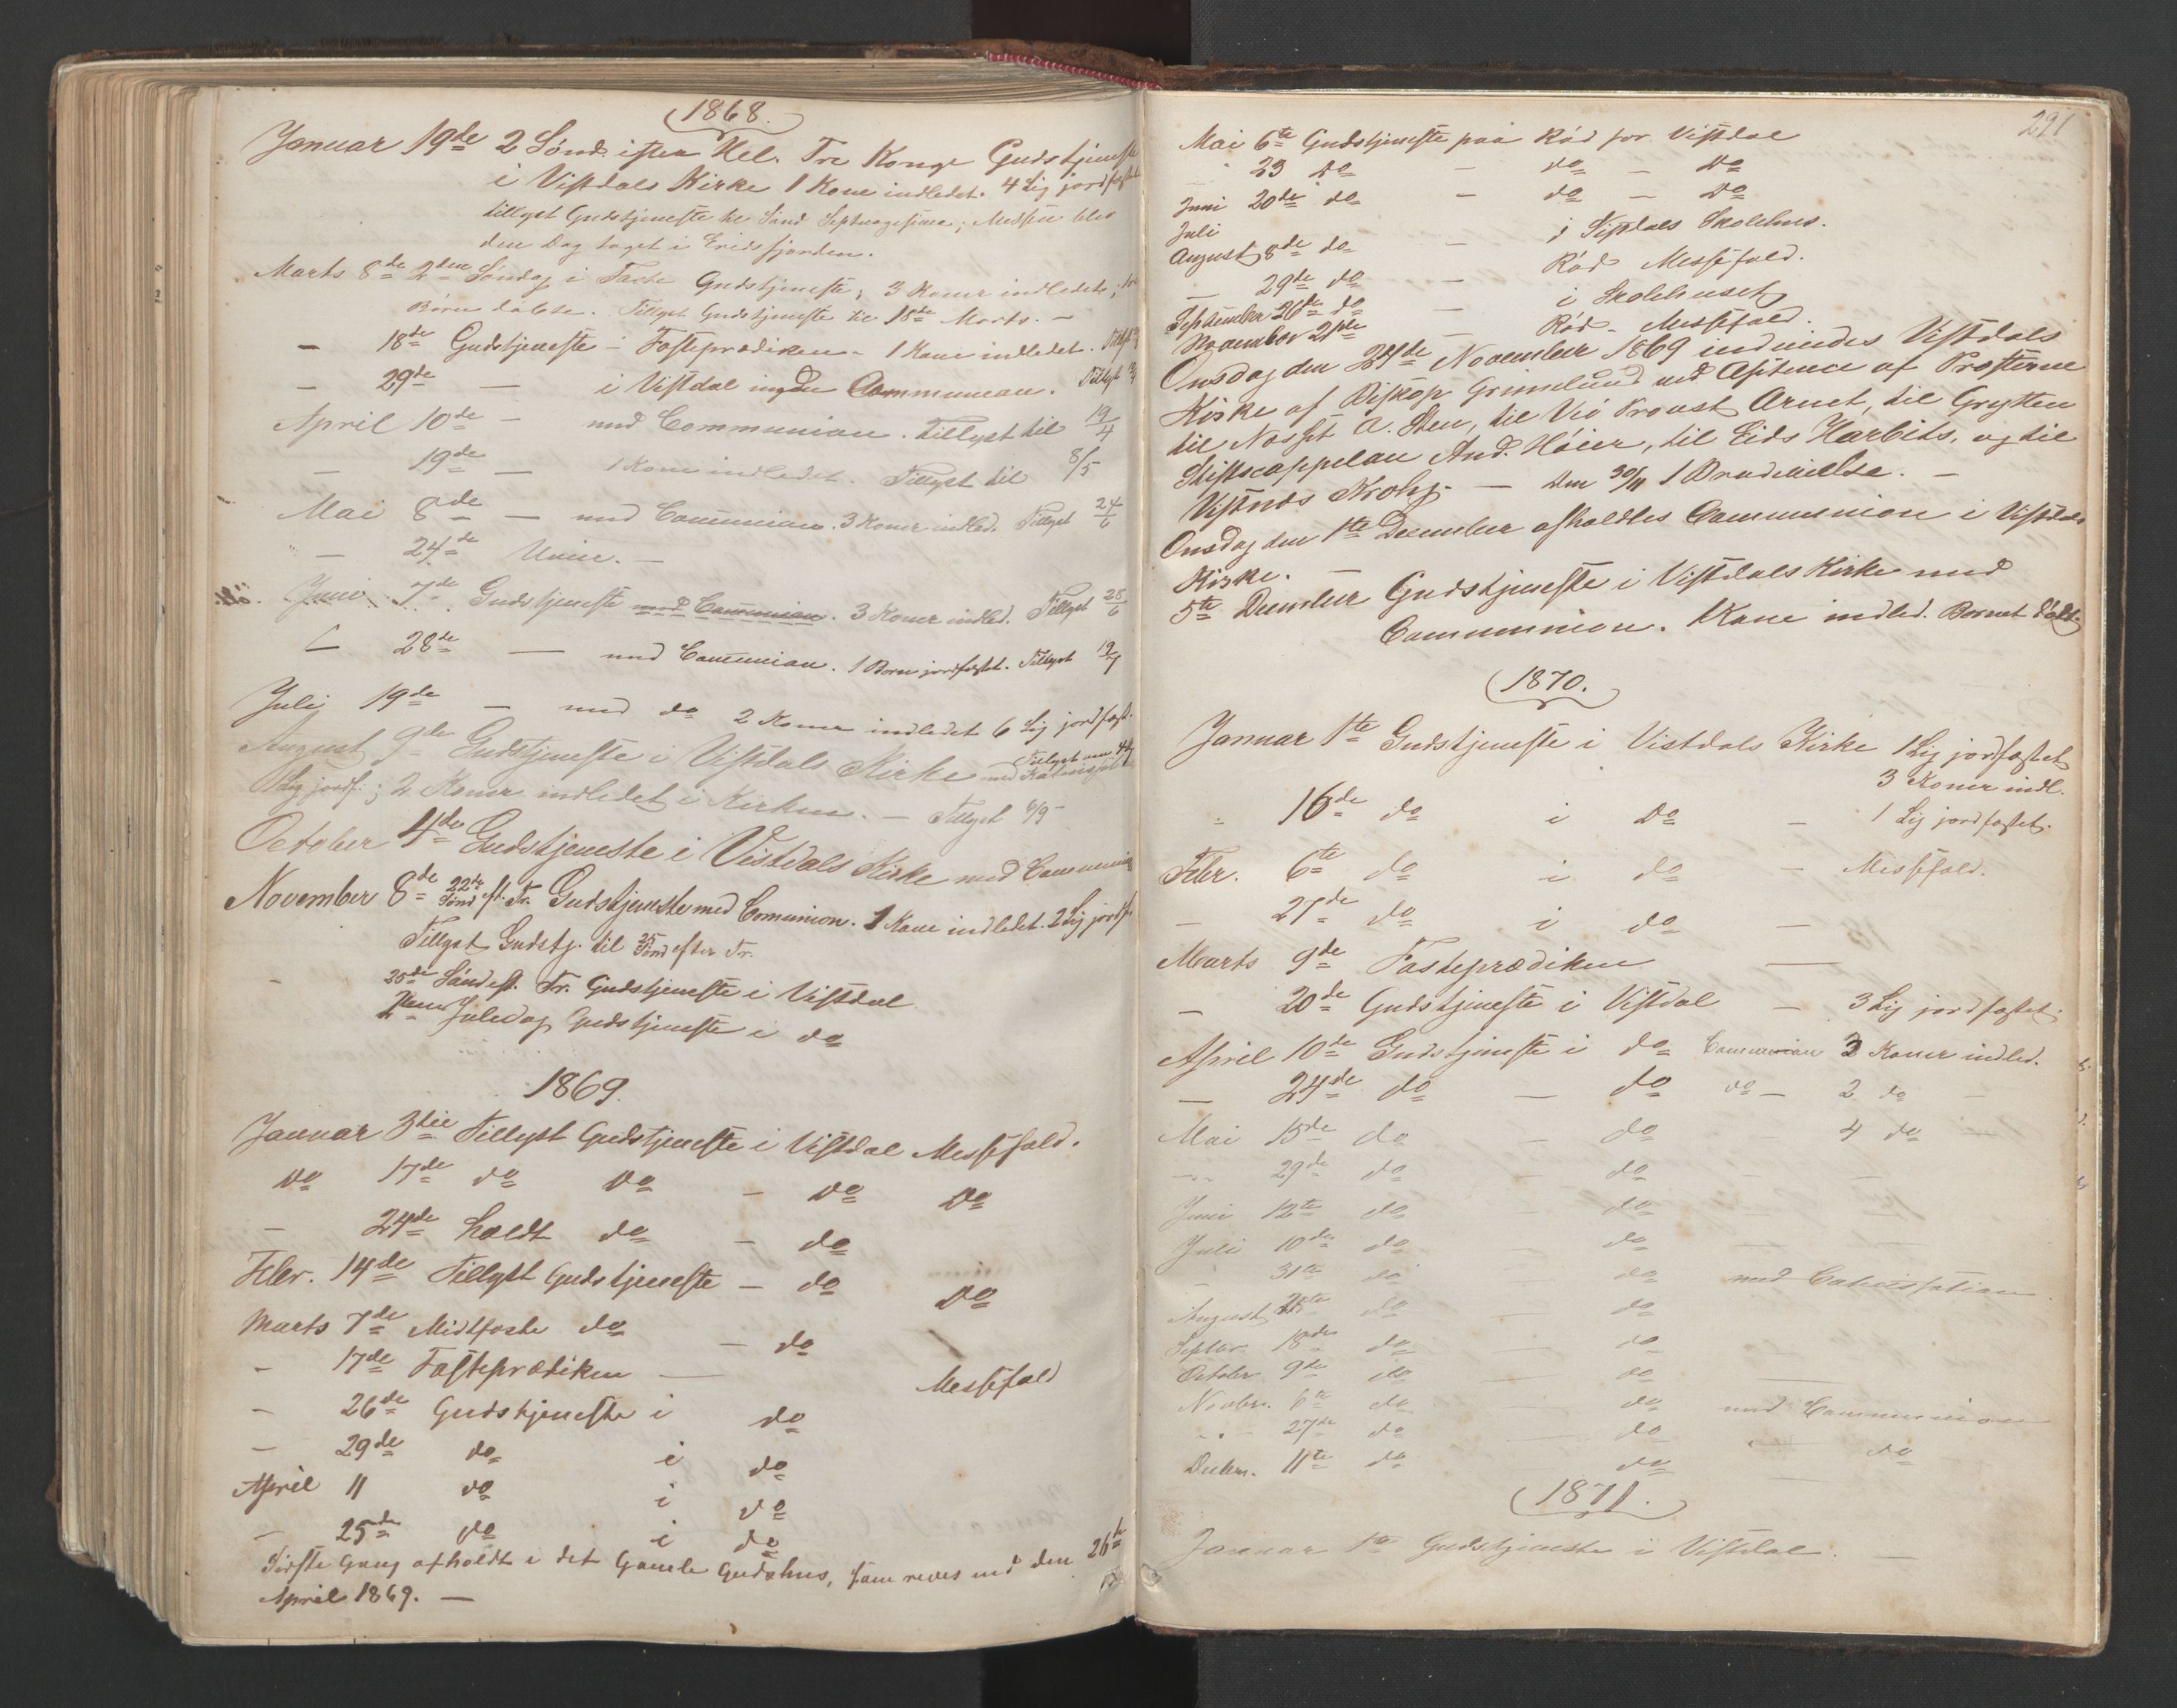 1868.
Januar 19de 2 Sønd. efter Hel. Tre Konge Gudstjeneste
i Vistdals Kirke 1 Kone indledet. 4 Lig jordfæstet
tillyst Gudstjeneste til Sønd Septuagesima; Messen blev
den Dag taget i Eridsfjorden.
Marts 8de 2den Søndag i Faste Gudstjeneste; 3 Koner indledet;
Børn døbte. Tillyst Gudstjeneste til 18de Marts. —
— 18de Gudstjeneste — Fasteprædiken - 1 Kone indledet. Tillyst
— 29de — i Vistdal ingen Communion. Tillyst
April 10de — med Communion. Tillyst til 19/4
— 19de — 1 Kone indledet. Tillyst til 8/5
Mai 8de — med Communion. 3 Koner indled. Tillyst 24/6
— 24de Union. —
Juni 7de Gudstjeneste med Communion. 3 Koner indled. Tillyst 28/6
— 28de — med Communion. 1 Barn jordfæstet. Tillyst 19/7
Juli 19de — med do 2 Koner indledet 6 Lig jordfæst.
August 9de Gudstjeneste i Vistdals Kirke med
Lig jordf.; 2 Koner indledet i Kirken. — Tillyst 6/9 -
October 4de Gudstjeneste i Vistdals Kirke med Communion
November 8de 22de Sønd eft. Tr. Gudstjeneste med Comunion. 1 Kone indledet. 2 Lig jordf.
Tillyst Gudstj. til 25 Sønd efter Tr.
- 25de Sønd eft. Tr. Gudstjeneste i Vistdal
2den Juledag Gudstjeneste i do
1869.
Januar 3die Tillyst Gudstjeneste i Vistdal Messefald.
Do 17de do Do - Do Do
- 24de holdt do - do
Febr. 14de Tillyst Gudstjeneste — do Do
Marts 7de Midtfaste do — do
- 17de Fasteprædiken — Messefald
- 26de Gudstjeneste i do
- 29de do i do
April 11 do i do
- 25de do i do
Sidste Gang afholdt i det Gamle Gudshus, som reves ned den 26de
April 1869. —
291
Mai 6te Gudstjeneste paa Rød for Vistdal
" 23 Do — do — Do
Juni 20de do — do — Do
Juli
August 8de do — i Vistdals Skolehus.
— 29de do — Rød Messefald.
September 26de do — i Skolehuset
November 21de — Rød - Messefald.
Onsdag den 24de November 1869 indviedes Vistdals
Kirke af Biskop Grimelund ved Assistence af Præsterne
til Nesset A. Sten, til Vei Provst Arnet, til Grytten
Stiftscappelan And. Høier, til Eids Harbitz, og til
Vistnes Krohg. — den 30/11 1 Brudevielse. —
Onsdag den 1ste December afholdtes Communion i Vistdals
Kirke. —
5te December Gudstjeneste i Vistdals Kirke med
Communion. 1 Kone indled. Barnet døbt.
1870.
Januar 1ste Gudstjeneste i Vistdals Kirke 1 Lig jordfæstet
3 Koner indl.
" 16de do i Do — 1 Lig jordfæstet.
Febr. 6te do i do — Messefald.
— 27de do i do —
Marts 9de Fasteprædiken —
— 20de Gudstjeneste i Vistdal — 3 Lig jordfæstet.
April 10de Gudstjeneste i do Communion 3 Koner indled.
— 24de do — do do — 2 do —
Mai 15de do — do — 4 do —
— 29de do — do —
Juni 12te do — do —
Juli 10de do — do —
" 31te do — do med Catechisation.
August do — do
Septbr. 18de do — do —
October 9de do — do —
Novbr. 6te do — do med Communion
- " - 27de do — do — do
Decbr. 11te do — do —
1871.
Januar 1ste Gudstjeneste i Vistdal. —